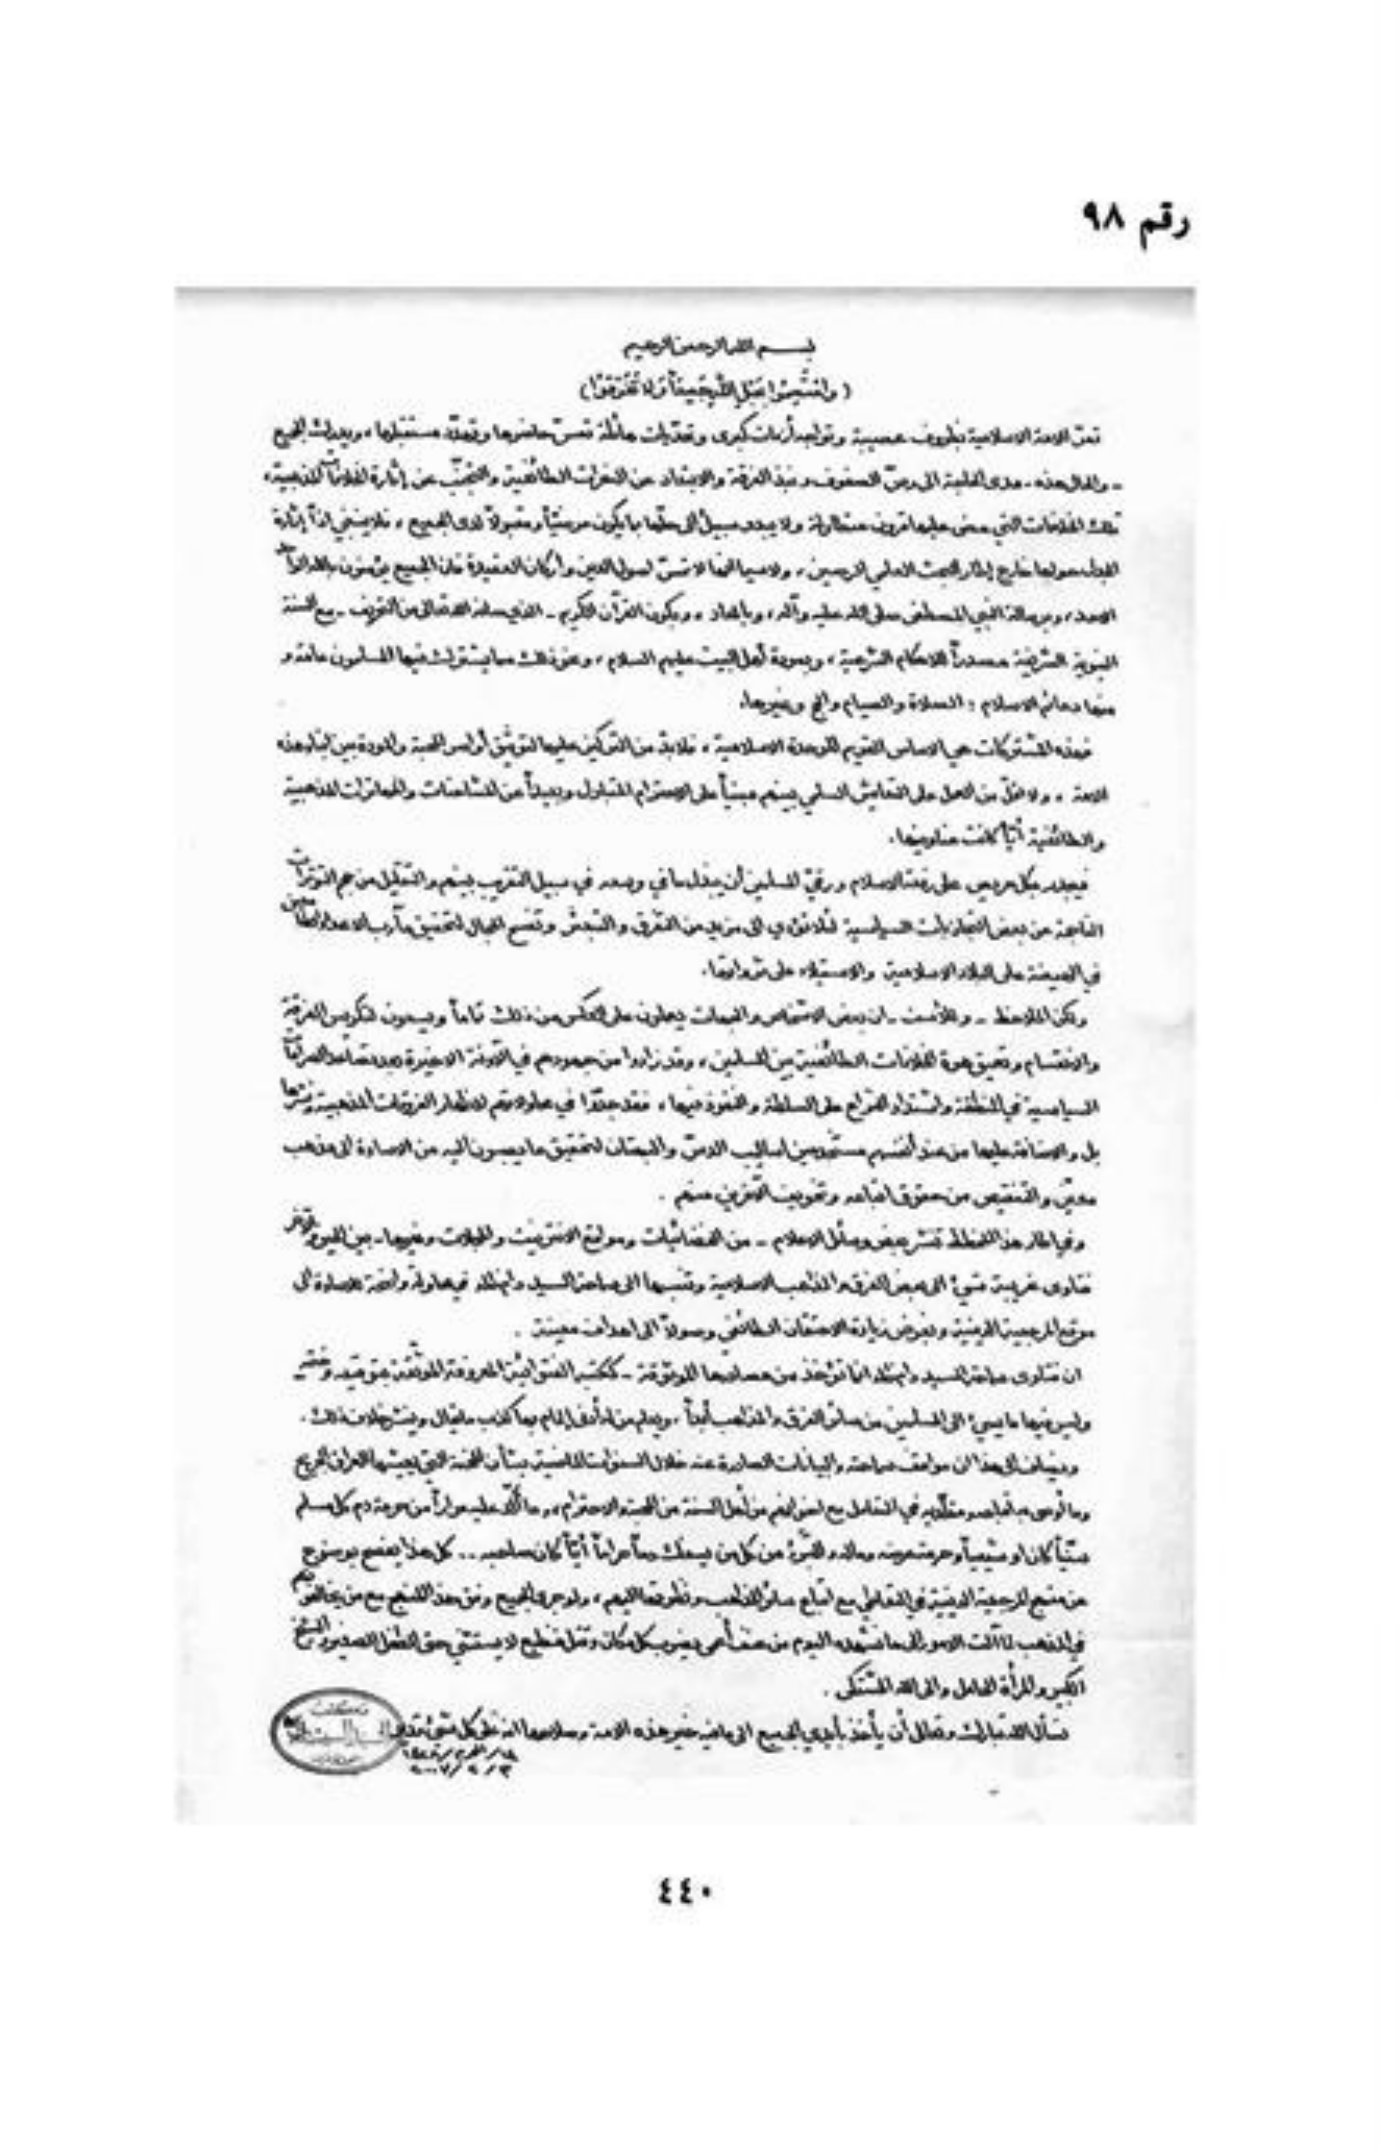 رقم ٩٨
بسم الله الرحمن الرحيم
(واعتصموا بحبل الله جميعاً ولا تفرقوا)
تمرّ الامة الاسلامية بظروف عصيبة وتواجه أزمات كبرى وتحدّيات هائلة تمسّ حاضرها وتهدّد مستقبلها، ويدرك الجميع
ـ والحال هذه ـ مدى الحاجة الى رصّ الصفوف ونبذ الفرقة والابتعاد عن النعرات الطائفية والتجنّب عن إثارة الخلافات المذهبية،
تلك الخلافات التي مضى عليها قرون متطاولة ولا يبدو سبيل الى حلّها بما يكون مرضيّاً ومقبولاً لدى الجميع، فلا ينبغي اذاً إثارة
الجدل حولها خارج إطار البحث العلمي الرصين، ولا سيما انها لا تمسّ اصول الدين وأركان العقيدة فان الجميع يؤمنون بالله الواحد
الاحد، وبرسالة النبي المصطفى صلى الله عليه وآله، وبالمعاد، وبكون القرآن الكريم ـ الذي صانه الله تعالى من التحريف ـ مع السنة
النبوية الشريفة مصدراً للاحكام الشرعية، وبمودة أهل البيت عليهم السلام، ونحو ذلك مما يشترك فيها المسلمون عامة و
منها دعائم الاسلام: الصلاة والصيام والحج وغيرها.
فهذه المشتركات هي الاساس القويم للوحدة الاسلامية، فلابدّ من التركيز عليها لتوثيق أواصر المحبة والمودة بين ابناء هذه
الامة، ولا اقلّ من العمل على التعايش السلمي بينهم مبنياً على الاحترام المتبادل وبعيداً عن المشاحنات والمهاترات المذهبية
والطائفية أيّاً كانت عناوينها.
فيجدر بكل حريص على رفعة الاسلام ورقيّ المسلمين أن يبذل ما في وسعه في سبيل التقريب بينهم والتقليل من حجم التوترات
الناجمة عن بعض التجاذبات السياسية لئلا تؤدي الى مزيد من التفرق والتبعثر وتفسح المجال لتحقيق مآرب الاعداء الطامعين
في الهيمنة على البلاد الاسلامية والاستيلاء على ثرواتها.
ولكن الملاحظ ـ وللأسف ـ ان بعض الاشخاص والجهات يعملون على العكس من ذلك تماماً ويسعون لتكريس الفرقة
والانقسام وتعميق هوة الخلافات الطائفية بين المسلمين، وقد زادوا من جهودهم في الآونة الاخيرة بعد تصاعد الصراعات
السياسية في المنطقة واشتداد النزاع على السلطة والنفوذ فيها، فقد جدّوا في محاولاتهم لاظهار الفروقات المذهبية ونشرها
بل والاضافة عليها من عند أنفسهم مستخدمين اساليب الدسّ والبهتان لتحقيق ما يصبون اليه من الاساءة الى مذهب
معيّن والتنقيص من حقوق اتباعه وتخويف الآخرين منهم.
وفي اطار هذا المخطط تنشر بعض وسائل الاعلام ـ من الفضائيات ومواقع الانترنيت والمجلات وغيرها ـ بين الحين والآخر
فتاوى غريبة تسيء الى بعض الفرق والمذاهب الاسلامية وتنسبها الى سماحة السيد دام ظله في محاولة واضحة للاساءة الى
موقع المرجعية الدينية وبغرض زيادة الاحتقان الطائفي وصولاً الى اهداف معينة.
ان فتاوى سماحة السيد دام ظله انما تؤخذ من مصادرها الموثوقة ـ ككتبه الفتوائية المعروفة الموثّقة بتوقيعه وختمه ـ
وليس فيها ما يسيء الى المسلمين من سائر الفرق والمذاهب أبداً، ويعلم من له أدنى إلمام بها كذب ما يقال وينشر خلاف ذلك.
ويضاف الى هذا ان مواقف سماحته والبيانات الصادرة عنه خلال السنوات الماضية بشأن المحنة التي يعيشها العراق الجريح
وما أوصى به اتباعه ومقلّديه في التعامل مع اخوانهم من أهل السنة من المحبة والاحترام، وما أكّد عليه مراراً من حرمة دم كل مسلم
سنّياً كان او شيعياً وحرمة عرضه وماله والتبرّؤ من كل من يسفك دماً حراماً أيّاً كان صاحبه .. كل هذا يفصح بوضوح
عن منهج المرجعية الدينية في التعاطي مع اتباع سائر المذاهب ونظرتها اليهم، ولو جرى الجميع وفق هذا المنهج مع من يخالفونهم
في المذهب لما آلت الامور الى ما نشهده اليوم من عنف أعمى يضرب كل مكان وقتل فظيع لا يستثني حتى الطفل الصغير والشيخ
الكبير والمرأة الحامل والى الله المشتكى.
نسأل الله تبارك وتعالى أن يأخذ بأيدي الجميع الى ما فيه خير هذه الامة وصلاحها انه على كل شيء قدير
١٤/ المحرم/ ١٤٢٨
٣/ ٢/ ٢٠٠٧
مكتب
السيد السيستاني
٤٤٠